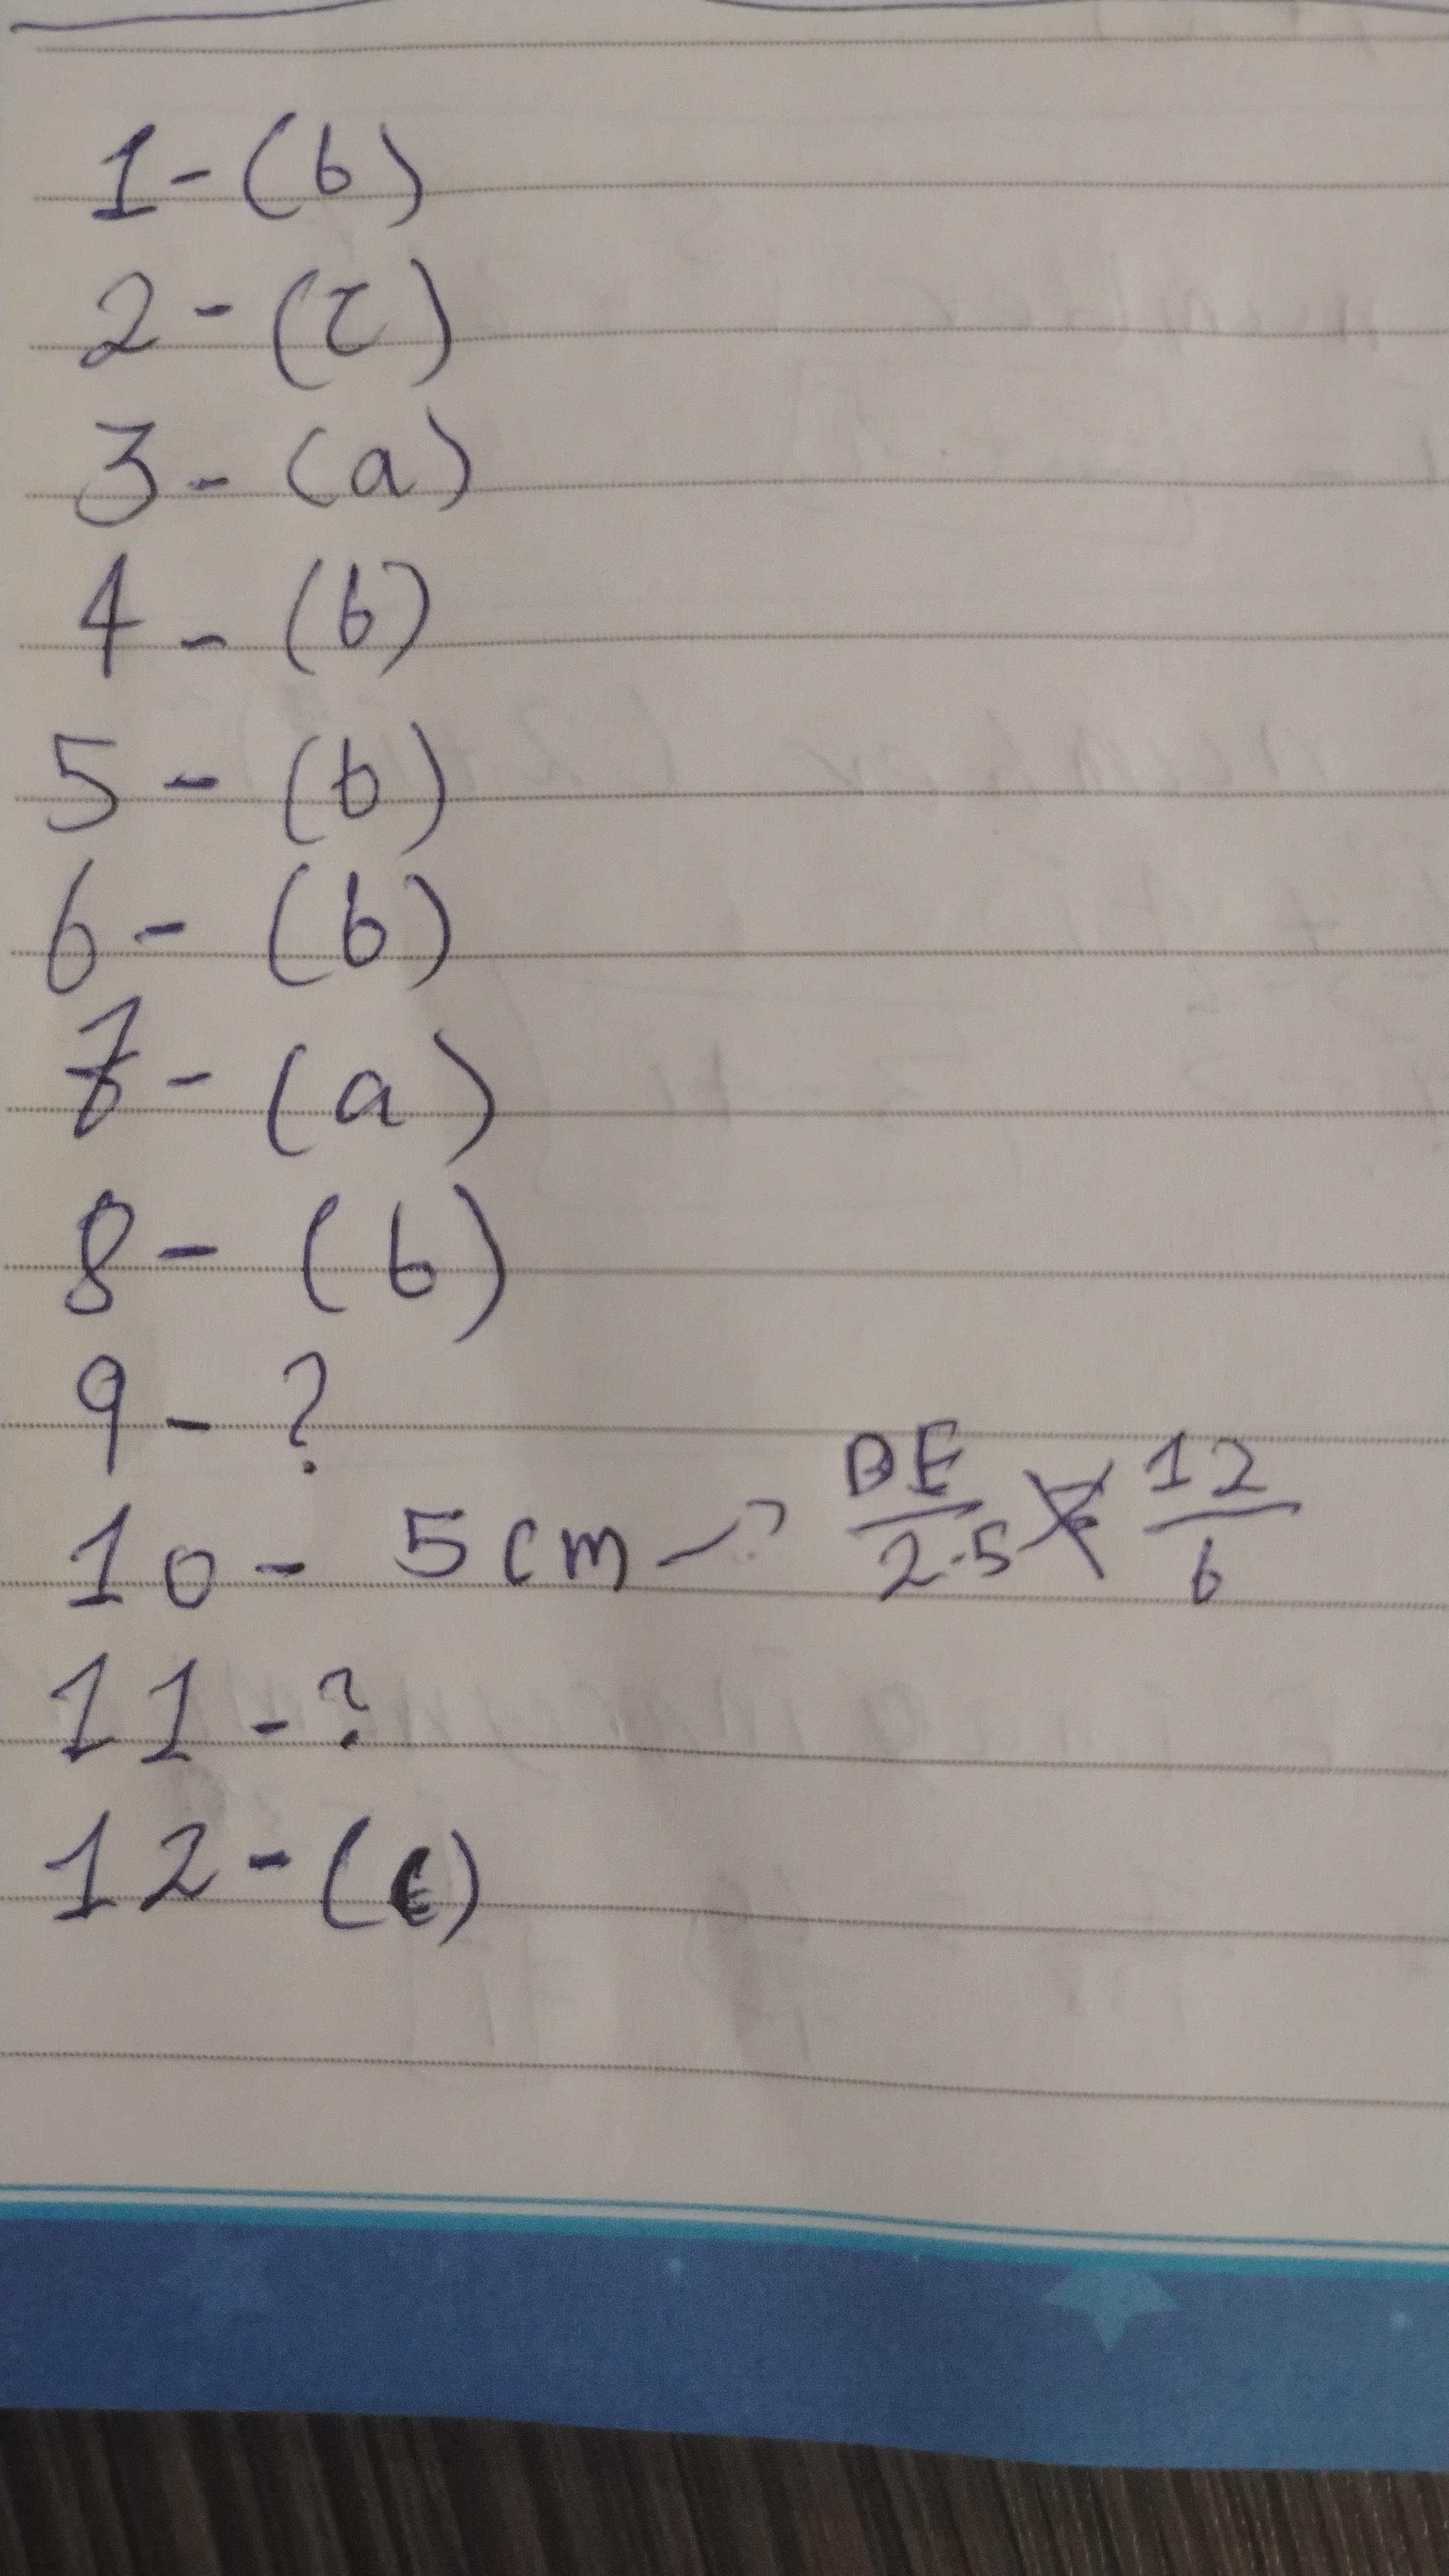 1 - (b)
2 - (c)
3 - (a)
4 - (b)
5 - (b)
6 - (b)
7 - (a)
8 - (b)
9 - ?
10 - 5 cm → DE/2.5 = 12/6
11 - ?
12 - (c)